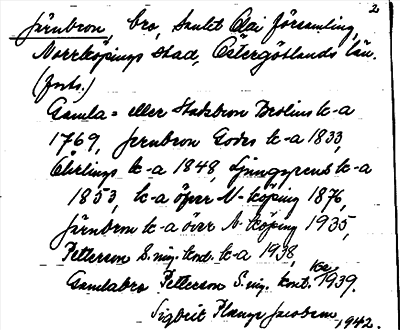 2
Järnbron, bro, Sankt Olai församling,
Norrköpings stad, Östergötlands län.
(forts.)
Gamla = eller Stadsbron Brolins k-a
1769, Jernbron Godes k-a 1833,
Öhrlings k-a 1848, Ljunggrens k-a
1853, k-a öfver N-köping 1876,
Järnbron k-a över N-köping 1935,
Petterson S. mg. kod. k-a 1938,
Gamlabro Petterson S. mg. kont. 1939.
Sigbrit Plange Jacobson, 1942.